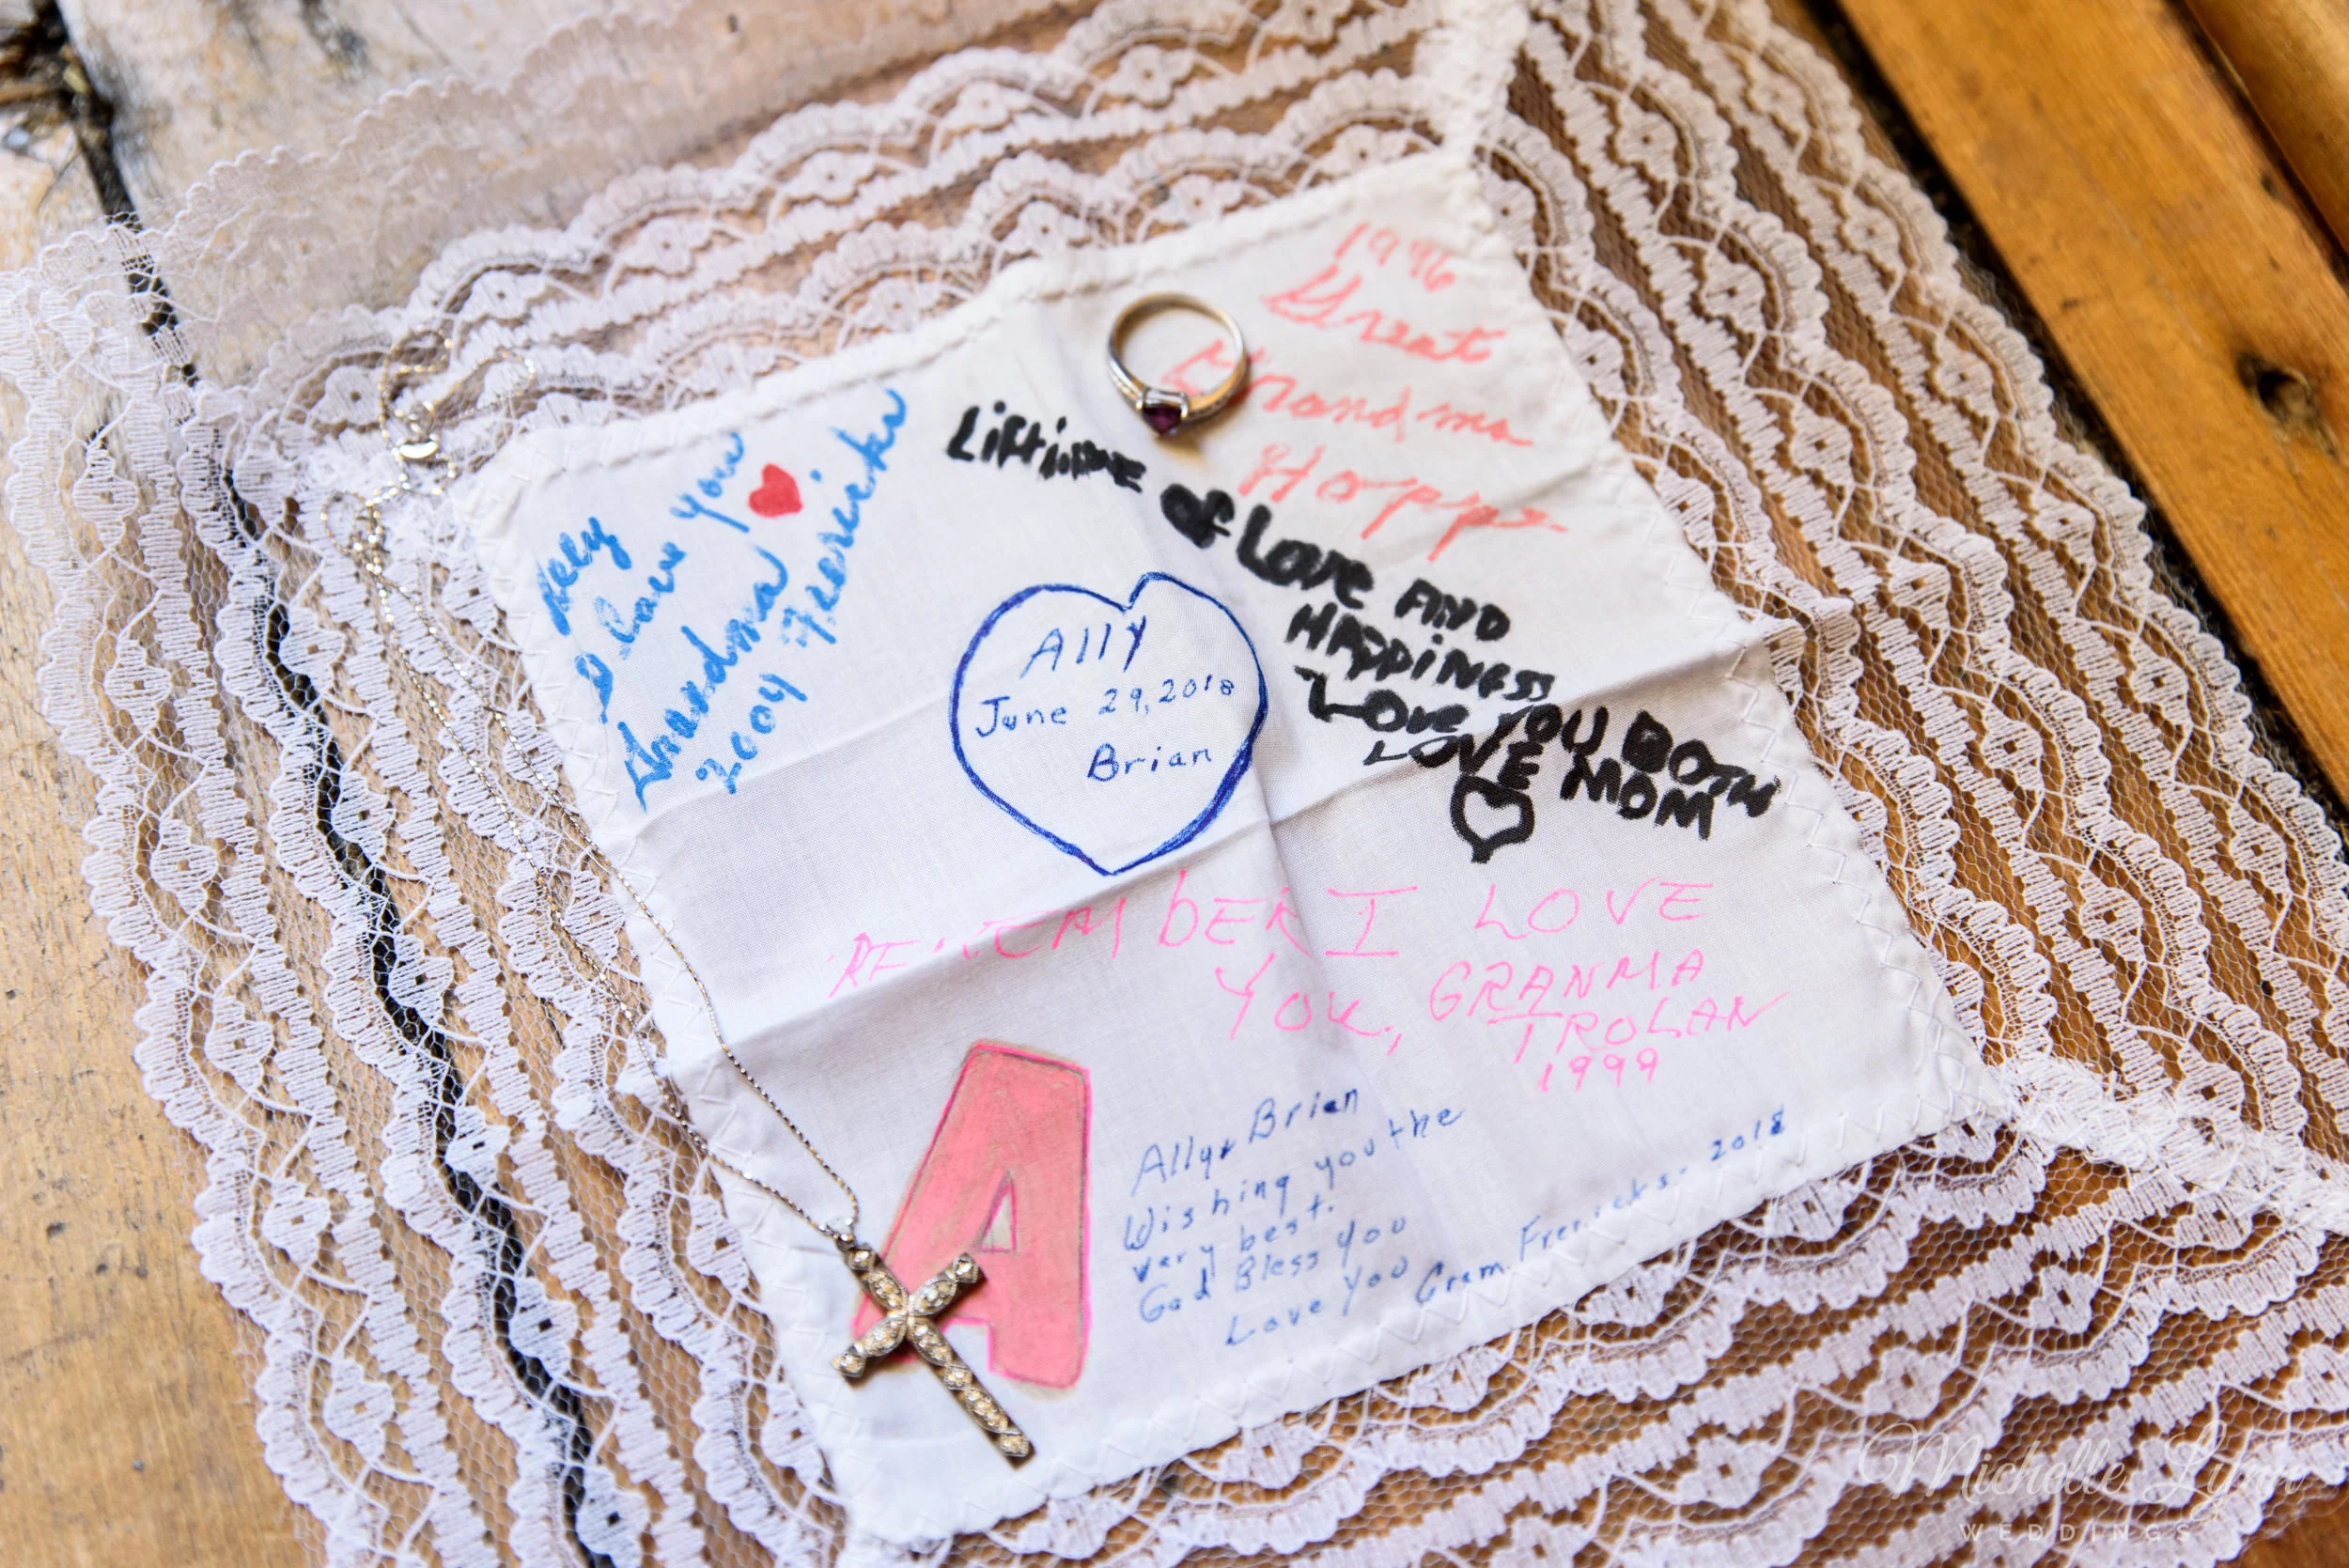 1996
Great
Grandma
Hopps
Ally
I love you
Grandma
2004 Frericks
Liftime
of Love AND
HAPPiNESS
Love YOU BOTH
LOVE MOM
Ally
June 29, 2018
Brian
REMEMBER I LOVE
YOU, GRANMA
TROLAN
1999
A
Ally & Brian
Wishing you the
very best.
God Bless You
Love You Gram Frericks - 2018
Michelle Lynn
WEDDINGS